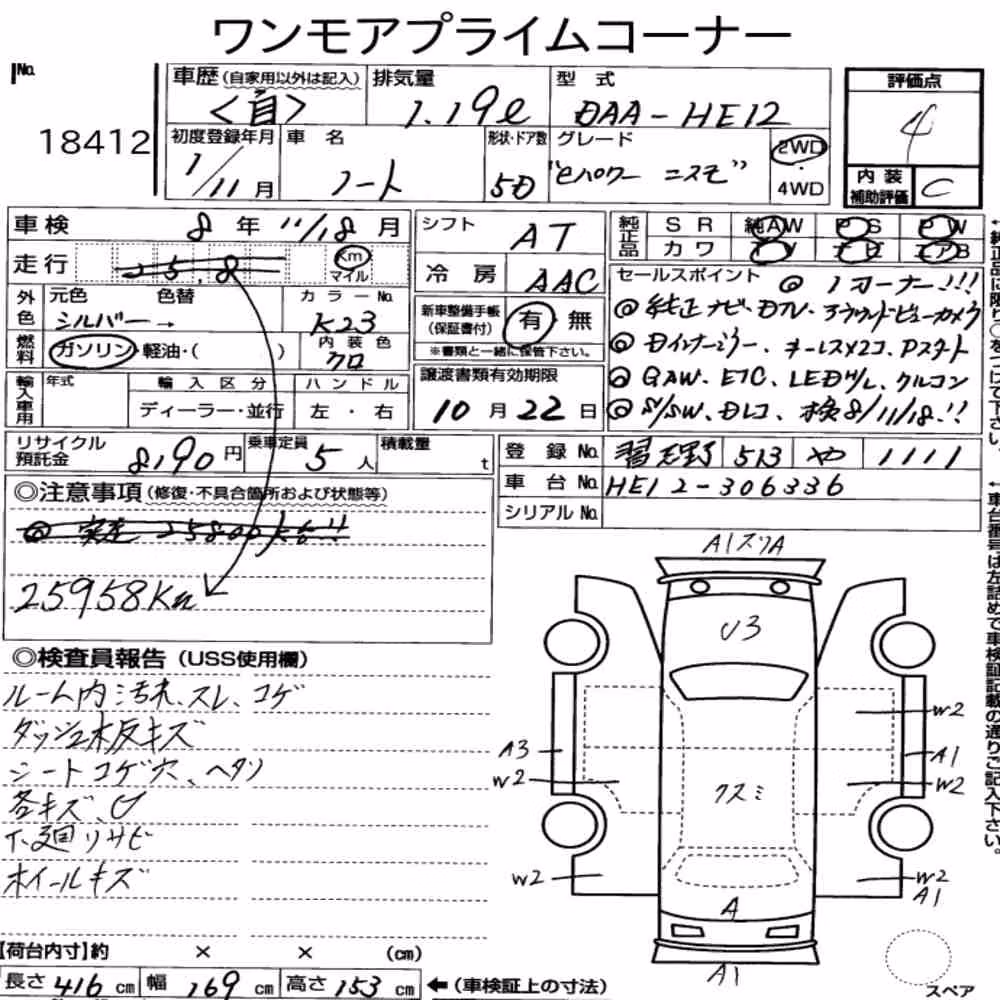 ワンモアプライムコーナー
No. 18412
車歴(自家用以外は記入) <自>
排気量 1.19ℓ
型式 DAA-HE12
評価点 4
内装補助評価 C
初度登録年月 1/11月
車名 ノート
形状・ドア数 5D
グレード "eパワー ニスモ"
2WD・4WD
車検 8年 11/18月
走行 25,8 Km マイル
外色 元色 シルバー→ 色替
カラーNo. K23
燃料 ガソリン・軽油・( )
内装色 クロ
輸入車用 年式 輸入区分 ディーラー・並行 ハンドル 左・右
シフト AT
冷房 AAC
新車整備手帳(保証書付) 有 無
※書類と一緒に保管下さい。
譲渡書類有効期限
10月22日
純正品 SR 純AW PS PW
カワ TV ナビ エアB
セールスポイント ◎1オーナー!!!
◎純正ナビ・DTV、アラウンドビューカメラ
◎Dインナーミラー、キーレス×2コ、Pスタート
◎GAW、ETC、LEDH/L、クルコン
◎S/SW、Dレコ、車検8/11/18!!
リサイクル預託金 8190円
乗車定員 5人
積載量 t
登録No. 習志野 513 や 1111
車台No. HE12-306336
シリアルNo.
◎注意事項(修復・不具合箇所および状態等)
◎ 実走 25800K台!!
25958Km
◎検査員報告(USS使用欄)
ルーム内汚れ、スレ、コゲ
ダッシュ木反キズ
シートコゲ穴、ヘタリ
各キズ、U
下廻りサビ
ホイールキズ
【荷台内寸】約 × × (cm)
長さ 416cm 幅 169cm 高さ 153cm ←(車検証上の寸法)
A1ズリA
U3
W2
A3
A1
W2
W2
クスミ
W2
W2
A1
A
A1
スペア
↑純正品に限り○をつけて下さい。
↑車台番号は左詰めで車検証記載の通りご記入下さい。